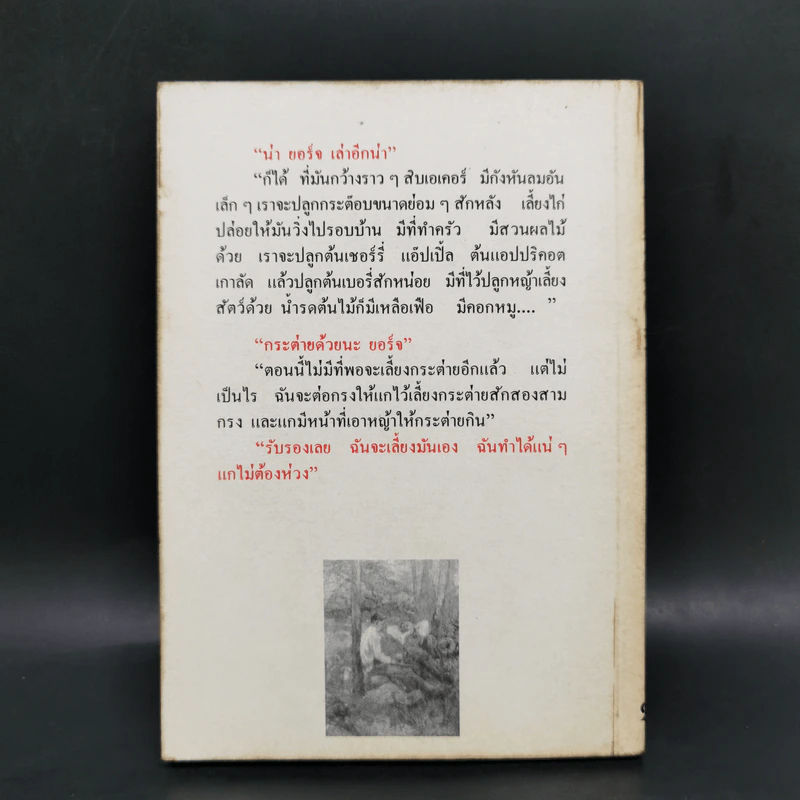 “น่า ยอร์จ เล่าอีกน่า”
“ก็ได้ ที่มันกว้างราว ๆ สิบเอเคอร์ มีกังหันลมอัน
เล็ก ๆ เราจะปลูกกระต๊อบขนาดย่อม ๆ สักหลัง เลี้ยงไก่
ปล่อยให้มันวิ่งไปรอบบ้าน มีที่ทำครัว มีสวนผลไม้
ด้วย เราจะปลูกต้นเชอร์รี่ แอ๊ปเปิ้ล ต้นแอปปริคอต
เกาลัด แล้วปลูกต้นเบอรี่สักหน่อย มีที่ไว้ปลูกหญ้าเลี้ยง
สัตว์ด้วย น้ำรดต้นไม้ก็มีเหลือเฟือ มีคอกหมู.... ”
“กระต่ายด้วยนะ ยอร์จ”
“ตอนนี้ไม่มีที่พอจะเลี้ยงกระต่ายอีกแล้ว แต่ไม่
เป็นไร ฉันจะต่อกรงให้แกไว้เลี้ยงกระต่ายสักสองสาม
กรง และแกมีหน้าที่เอาหญ้าให้กระต่ายกิน”
“รับรองเลย ฉันจะเลี้ยงมันเอง ฉันทำได้แน่ ๆ
แกไม่ต้องห่วง”